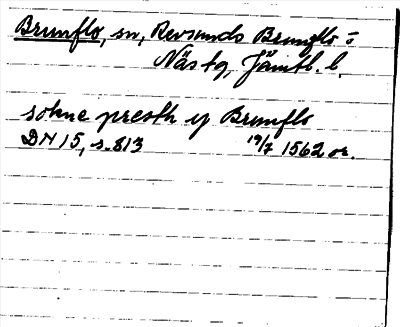 Brunflo, sn, Revsunds Brunflo o
Näs tg, Jämtl. l.
sokne presth y Brunflo
DN 15, s. 813 19/7 1562 or.